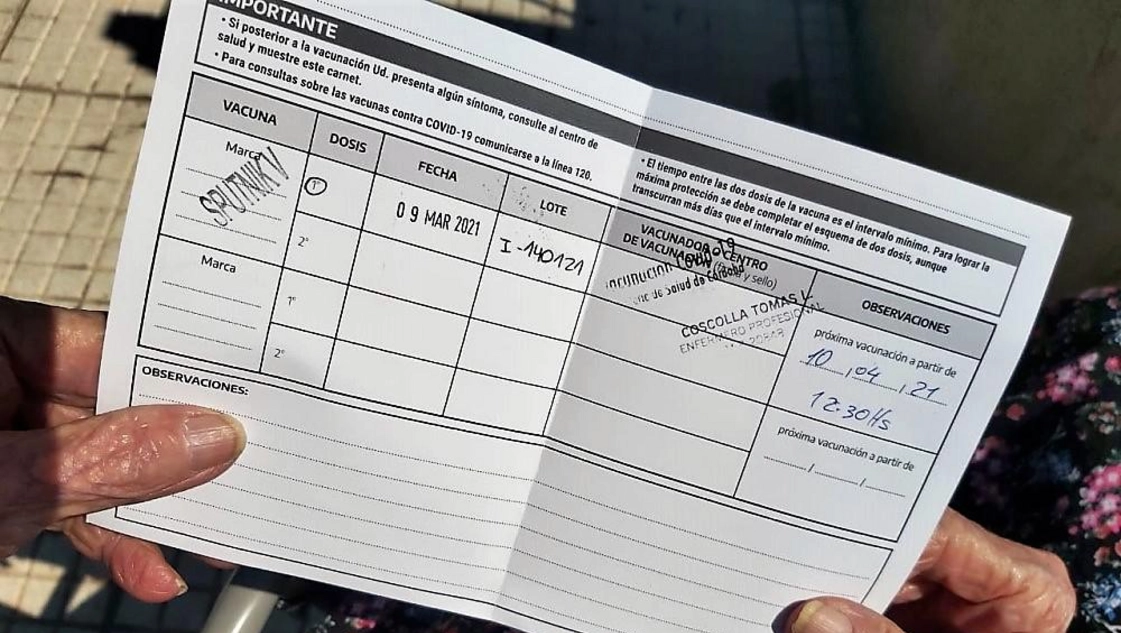 IMPORTANTE
• Si posterior a la vacunación Ud. presenta algún síntoma, consulte al centro de
salud y muestre este carnet.
• Para consultas sobre las vacunas contra COVID-19 comunicarse a la línea 120.
• El tiempo entre las dos dosis de la vacuna es el intervalo mínimo. Para lograr la
máxima protección se debe completar el esquema de dos dosis, aunque
transcurran más días que el intervalo mínimo.
VACUNA
DOSIS
FECHA
LOTE
VACUNADOR O CENTRO
DE VACUNACIÓN (firma y sello)
OBSERVACIONES
Marca
SPUTNIK V
1°
09 MAR 2021
I-140121
de Salud de Córdoba
COSCOLLA TOMAS L.
ENFERMERO PROFESIONAL
próxima vacunación a partir de
10, 04, 21
12:30Hs
2°
Marca
1°
2°
próxima vacunación a partir de
/ /
OBSERVACIONES: